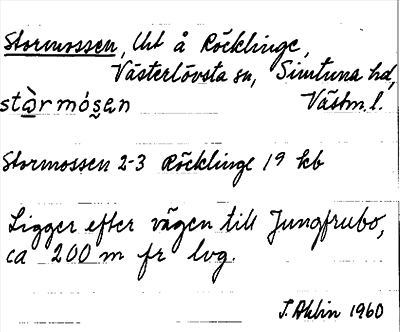 Stormossen, Uht å Röcklinge,
Västerlövsta sn, Simtuna hd,
stà̱rmós̰en Västm. l.
Stormossen 2-3 Röcklinge 19 kb
Ligger efter vägen till Jungfrubo,
ca 200 m fr lvg.
J. Ahlin 1960